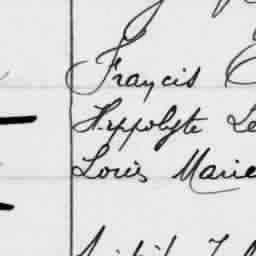 Francis
Hyppolyte Le
Louis Marie